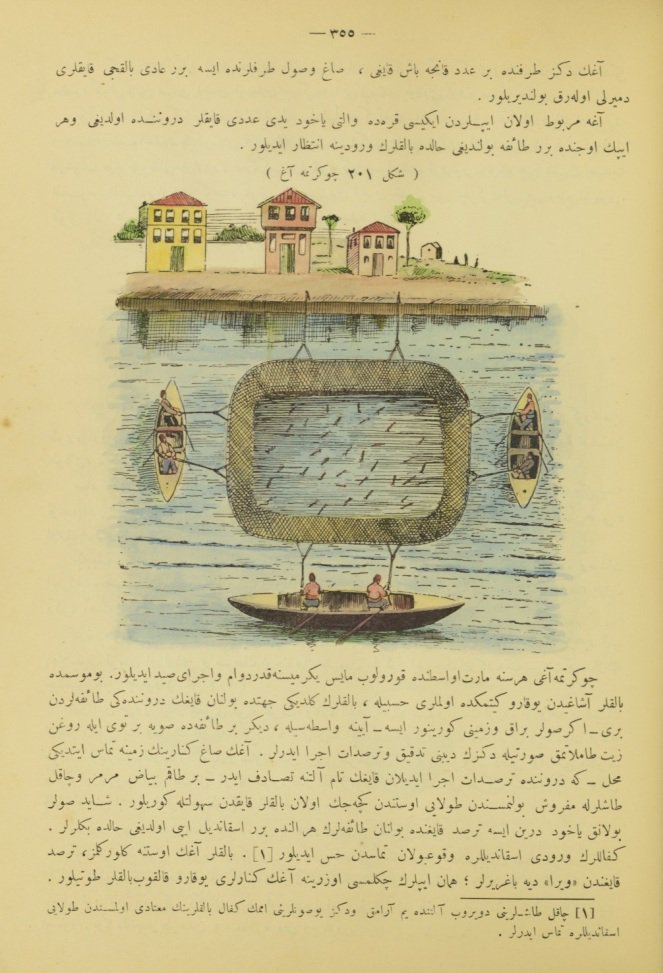 — ٣٥٥ —
آغك دكز طرفنده بر عدد قانجه باش قايغی ، صاغ وصول طرفلرنده ايسه برر عادی بالقجی قايقلری
دميرلی اوله‌رق بولنديريلور .
آغه مربوط اولان ايپلردن ايكيسی قره‌ده والتی ياخود يدی عددی قايقلر دروننده اولديغی وهر
ايپك اوجنده برر طائفه بولنديغی حالده بالقلرك ورودينه انتظار ايديلور .
( شكل ٢٠١ چوكرتمه آغ )
چوكرتمه آغی هرسنه مارت اواسطنده قورولوب مايس يكرميسنه قدر دوام واجرای صيد ايديلور. بو موسمده
بالقلر آشاغيدن يوقارو كيتمكده اولملری حسبيله ، بالقلرك كلديكی جهتده بولنان قايغك دروننده‌كی طائفه‌لردن
بری ــ اكر صولر براق وزمينی كورينور ايسه ــ آيينه واسطه‌سيله ، ديكر بر طائفه‌ده صويه بر توی ايله روغن
زيت طاملاتمق صورتيله دكزك ديبنی تدقيق وترصدات اجرا ايدرلر . آغك صاغ كنارينك زمينه تماس ايتديكی
محل ــ كه دروننده ترصدات اجرا ايديلان قايغك تام آلتنه تصادف ايدر ــ بر طاقم بياض مرمر وچاقل
طاشلرله مفروش بولنمسندن طولايی اوستندن كچه‌جك اولان بالقلر قايقدن سهولتله كوريلور . شايد صولر
بولانق ياخود درين ايسه ترصد قايغنده بولنان طائفه‌لرك هر النده برر اسقانديل ايپی اولديغی حالده بكلرلر .
كفاللرك ورودی اسقانديللره وقوعبولان تماسدن حس ايديلور [١] . بالقلر آغك اوستنه كلوركلمز، ترصد
قايغندن «ويرا» ديه باغريرلر ؛ همان ايپلرك چكلمسی اوزرينه آغك كنارلری يوقارو قالقوب بالقلر طوتيلور .
[١] چاقل طاشلرينی دويروب آلتنده يم آرامق ودكز يوصونلرينی اممك كفال بالقلرينك معتادی اولمسندن طولايی
اسقانديللره تماس ايدرلر .